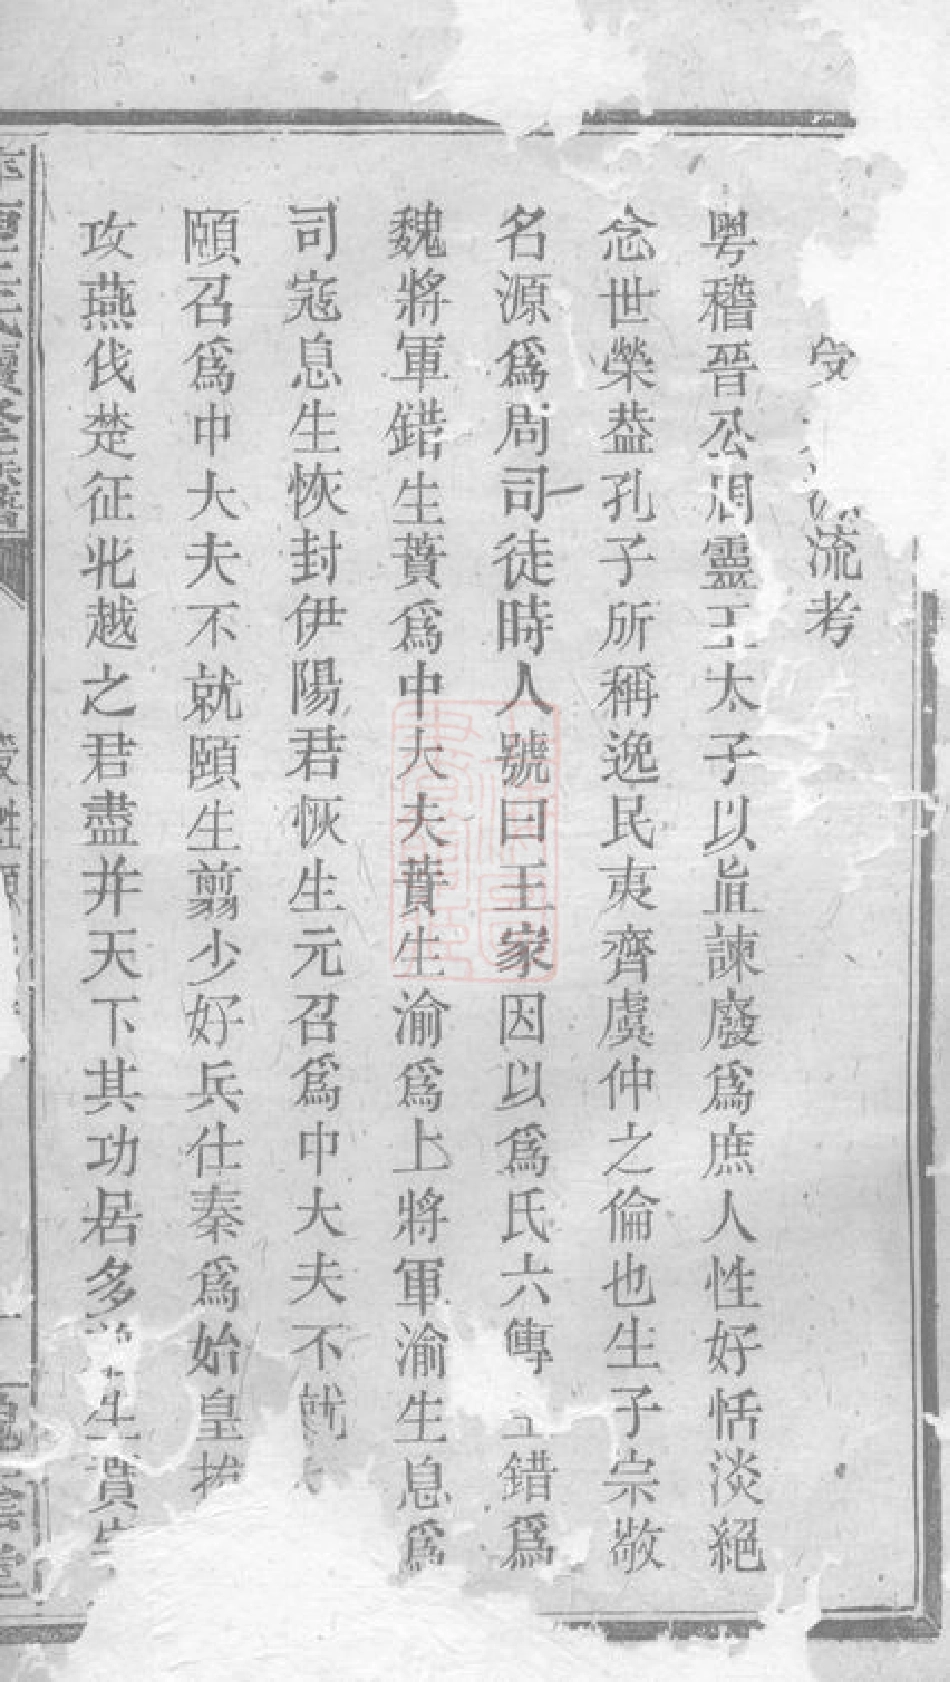 流考
粤稽晉公周靈王太子以直諫廢爲庶人性好恬淡絕
念世榮葢孔子所稱逸民夷齊虞仲之倫也生子宗敬
名源爲周司徒時人號曰王家因以爲氏六傳王錯爲
魏將軍錯生蕡爲中大夫蕡生渝爲上將軍渝生息爲
司寇息生恢封伊陽君恢生元召爲中大夫不就
頤召爲中大夫不就頤生翦少好兵仕秦爲始皇
攻燕伐楚征北越之君盡并天下其功居多生賁
王氏續修族譜
姓源
槐蔭堂